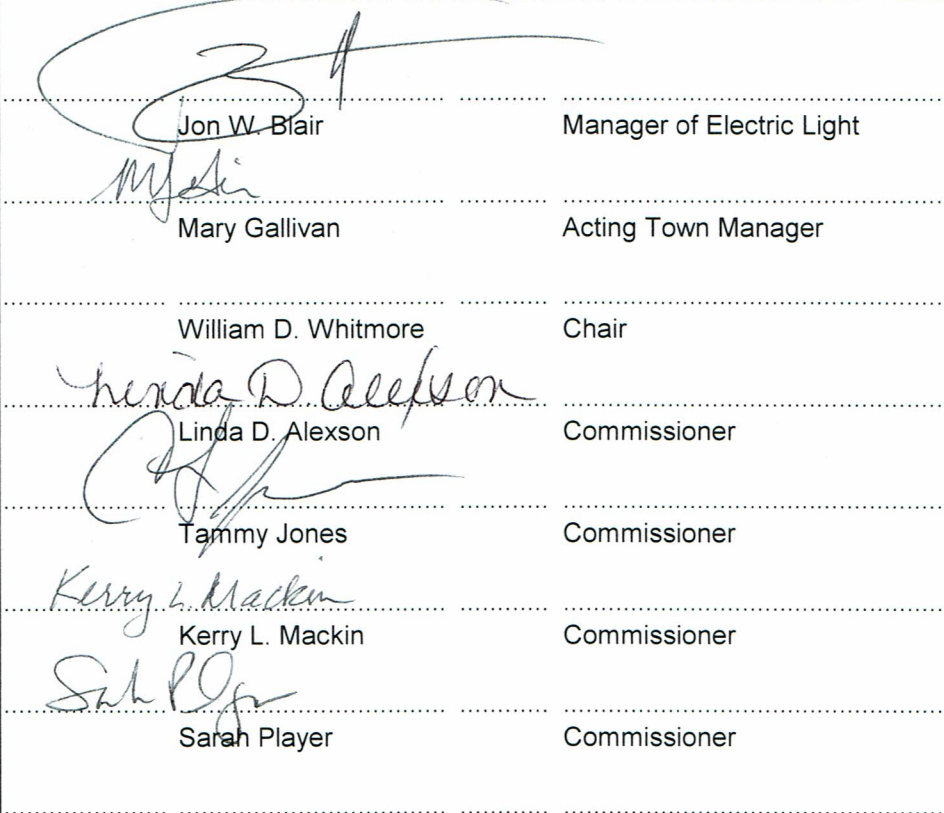 Jon W. Blair Manager of Electric Light
Mary Gallivan Acting Town Manager
William D. Whitmore Chair
Linda D. Alexson
Linda D. Alexson Commissioner
Tammy Jones Commissioner
Kerry L. Mackin
Kerry L. Mackin Commissioner
Sarah Player Commissioner